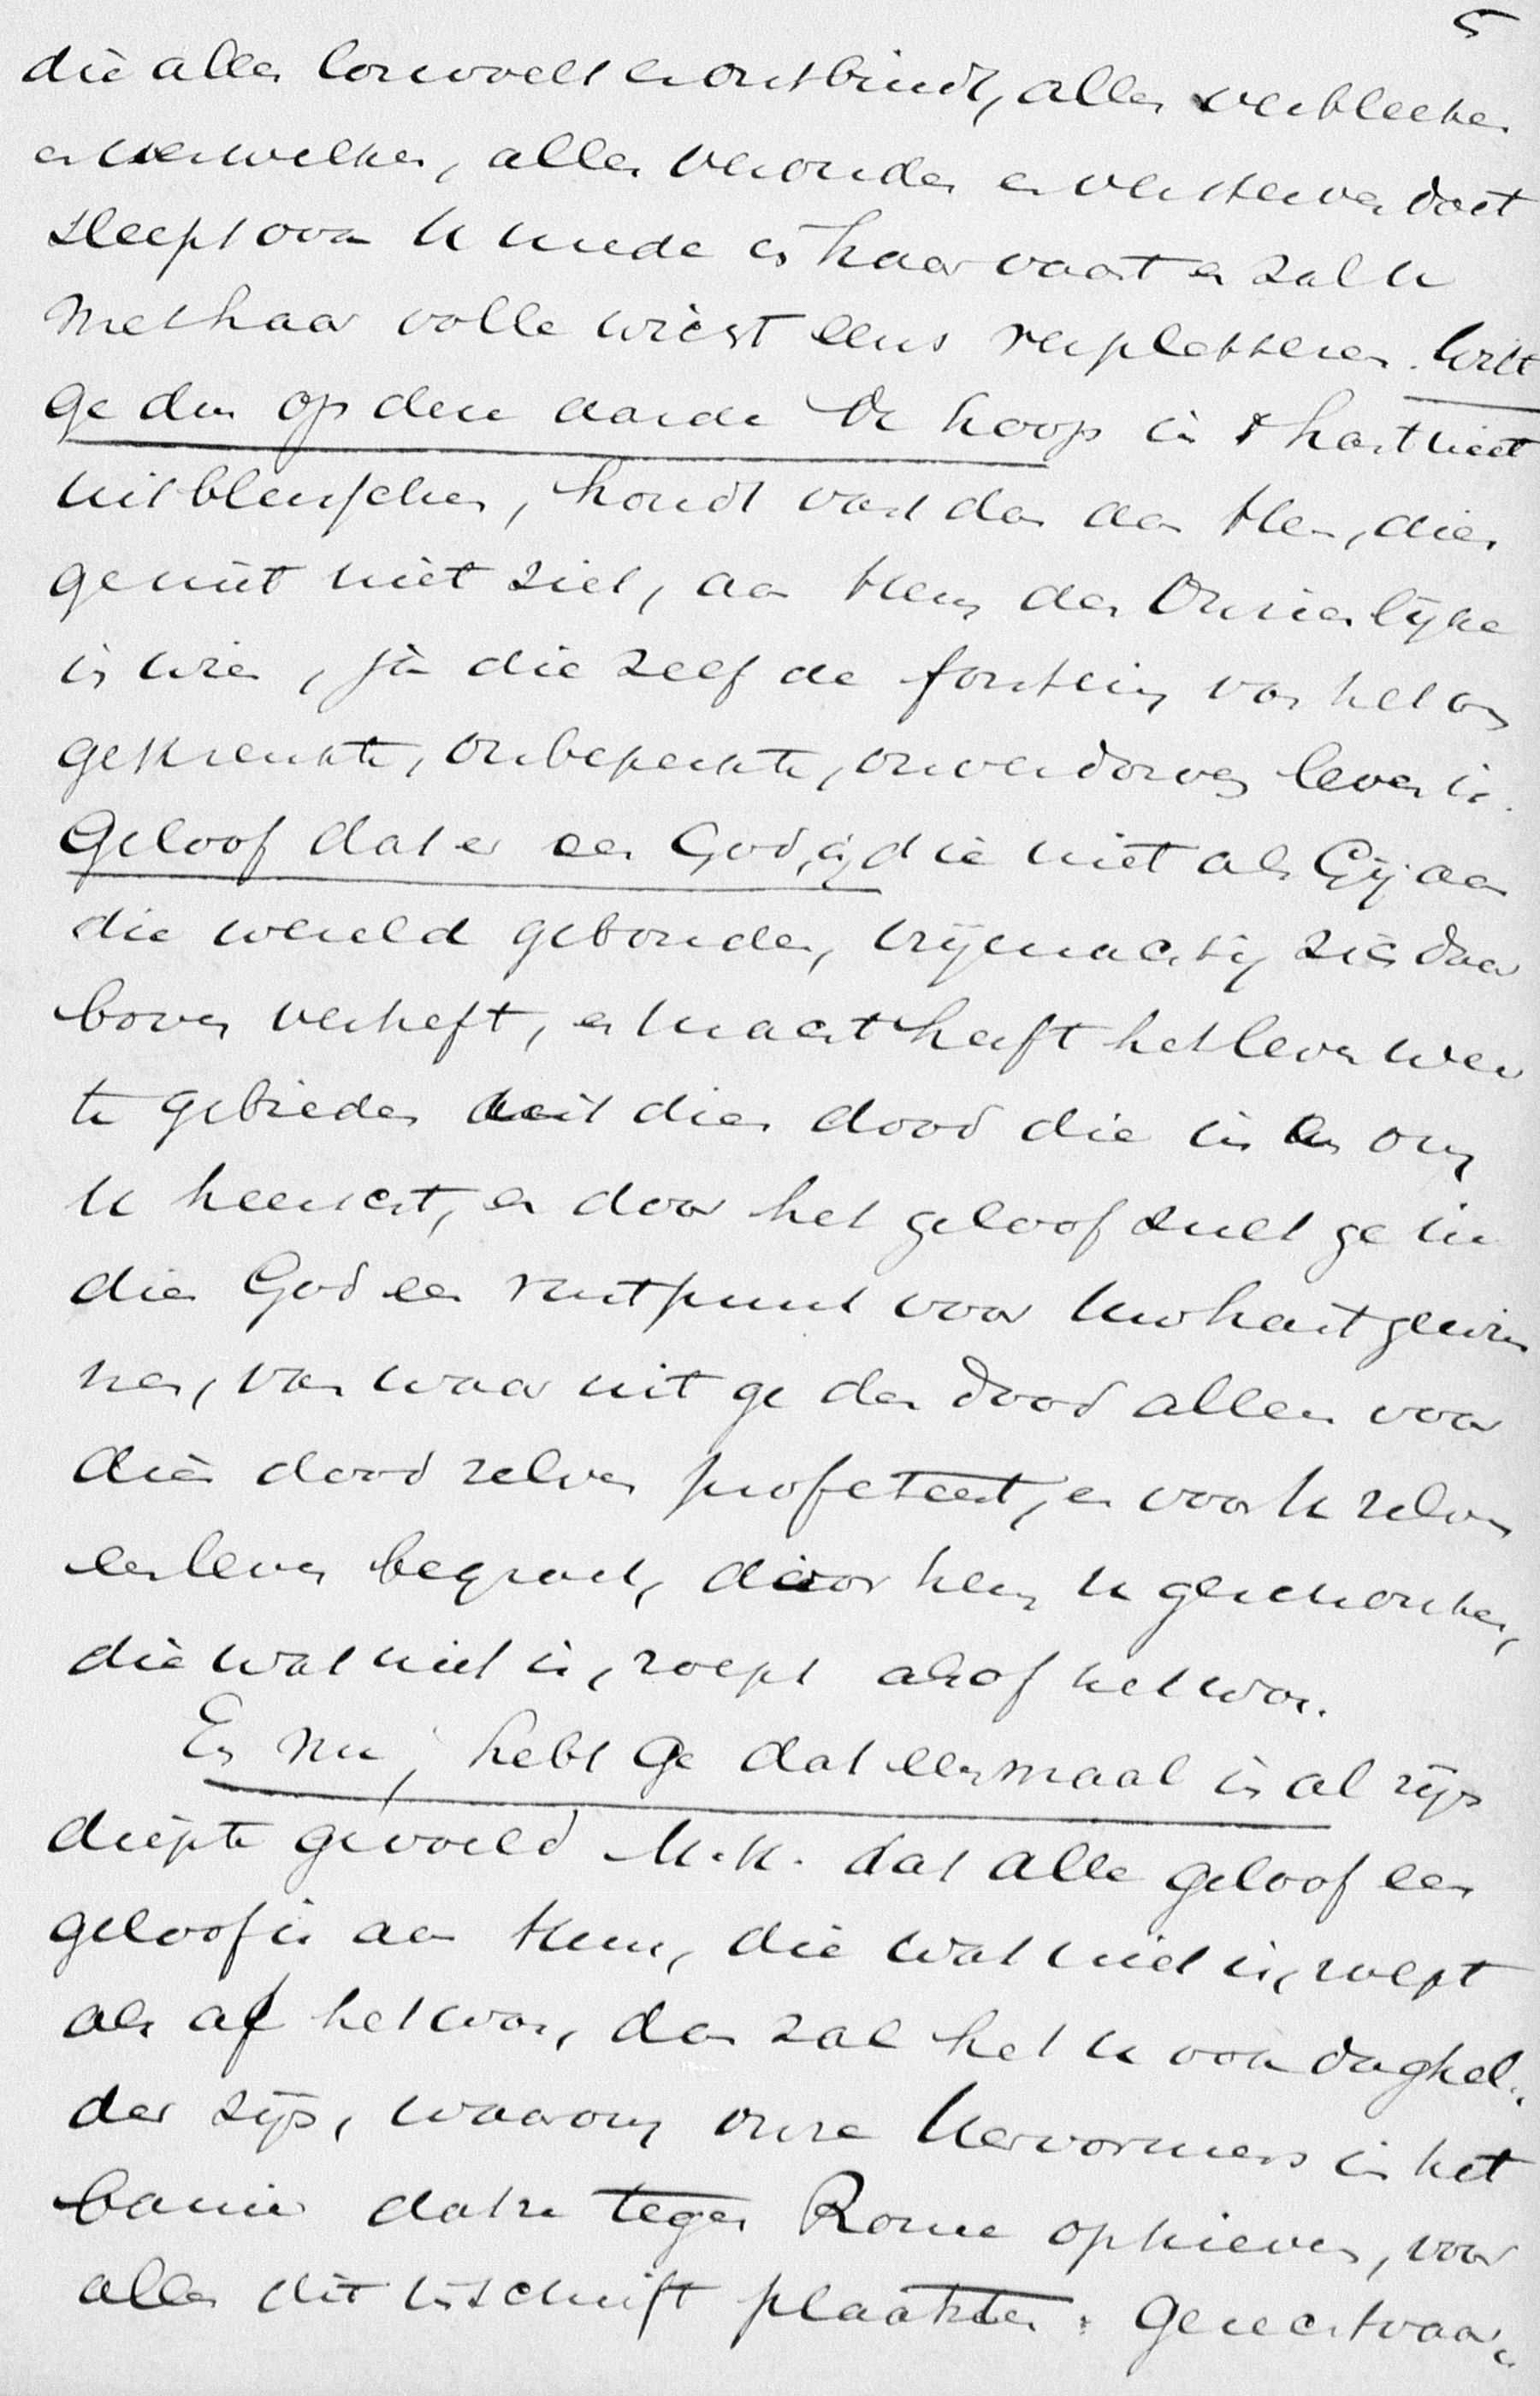 5
die alles losmaakt en ontbindt, alles verbleeken
en verwelken, alles verouden en versterven doet
sleept ook U mede in haar vaart en zal U
met haar volle wicht eens verpletteren. Wilt
ge dus op deze aarde de hoop in 't hart niet
uitblusschen, houdt vast dan aan Hem, dien
ge niet niet ziet, aan Hem den Onzienlijke
in wien, ja die zelf de fontein van het on
gekrenkte, onbeperkte, onverdorven leven is.
Geloof dat er een God is, die niet als Gij aan
die wereld gebonden, vrijmachtig zich daar
boven verheft, en macht heeft het leven weer
te gebieden uit dien dood die in en om
U heerscht, en door het geloof zult ge in
dien God een rustpunt voor Uw hart gewin
nen, van waar uit ge den dood aller voor
dien dood zelven profeteert, en voor U zelven
een leven begroet, door hem U geschonken,
die wat niet is, roept alsof het was.
En nu, hebt Ge dat eenmaal in al zijn
diepte gevoeld M.H. dat alle geloof een
geloof is aan Hem, die wat niet is, roept
als of het was, dan zal het U ook daghel„
der zijn, waarom onze Hervormers in het
banier dat ze tegen Rome ophieven, voor
alles dit inschrift plaatsten: Gerechtvaar„